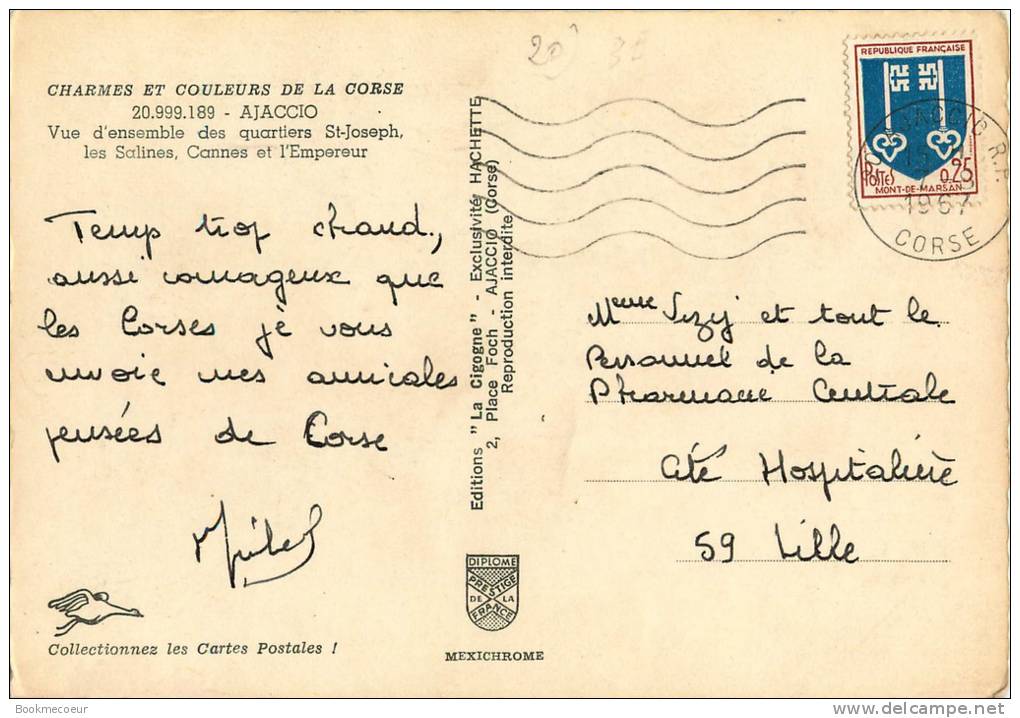 CHARMES ET COULEURS DE LA CORSE
20.999.189 - AJACCIO
Vue d'ensemble des quartiers St-Joseph,
les Salines, Cannes et l'Empereur
Temps trop chaud,
aussi courageux que
les Corses je vous
envoie mes amicales
pensées de Corse
Collectionnez les Cartes Postales !
Editions "La Cigogne" - Exclusivité HACHETTE
2, Place Foch - AJACCIO (Corse)
Reproduction interdite
DIPLOME
PRESTIGE
DE LA
FRANCE
MEXICHROME
20 31
REPUBLIQUE FRANÇAISE
POSTES 0,25
MONT-DE-MARSAN
AJACCIO R.P.
1967
CORSE
Mme et tout le
Personnel de la
Pharmacie Centrale
Cité Hospitalière
59 Lille
Bookmecoeur
delcampe.net